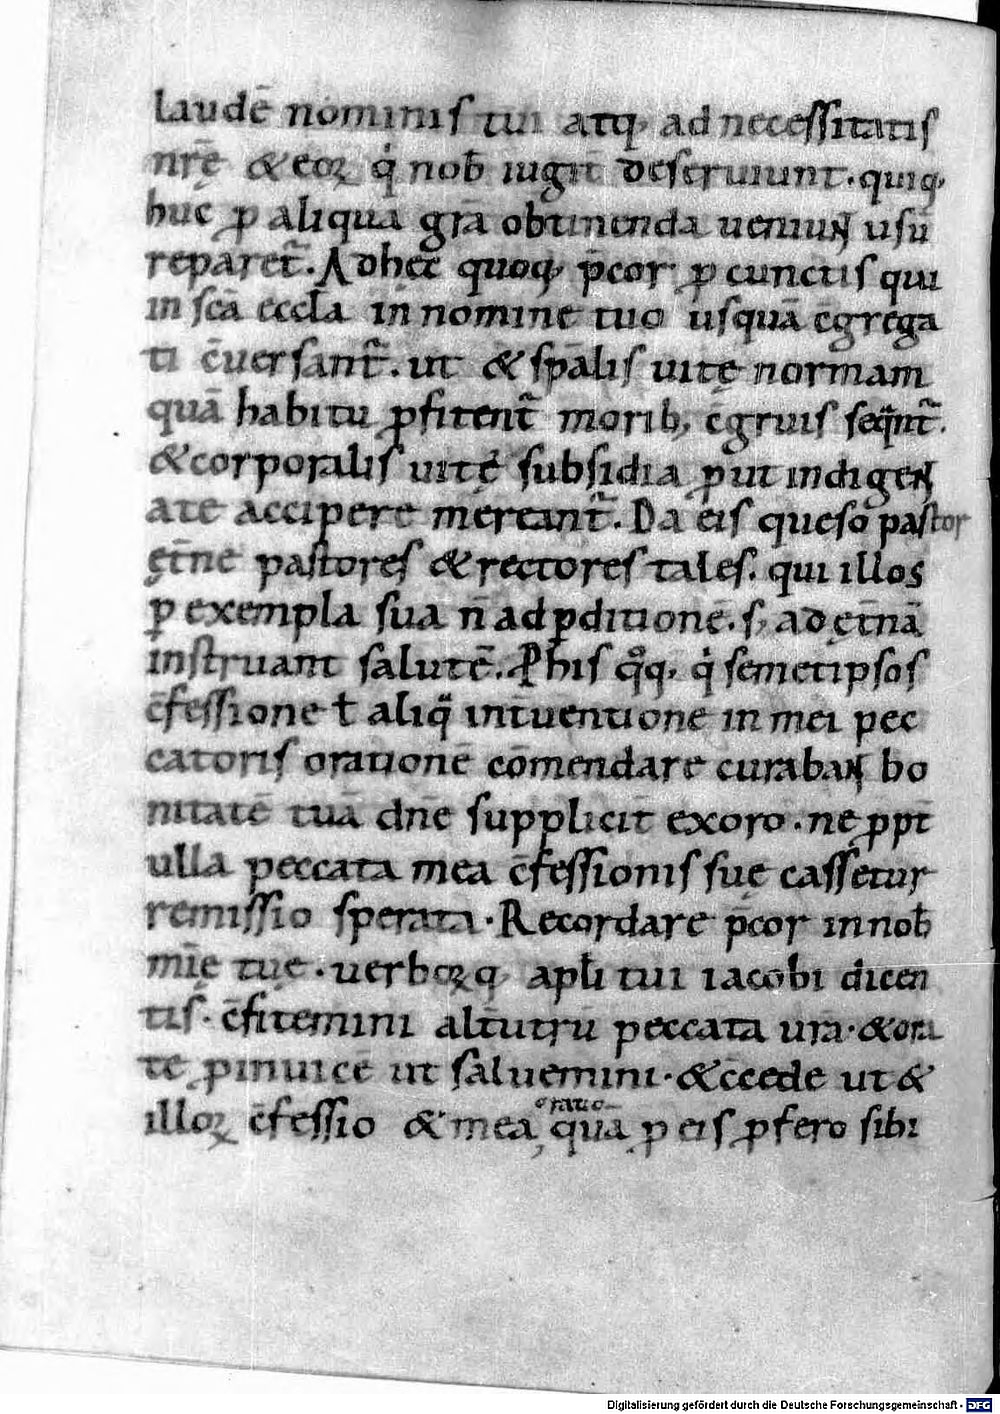 laudē nominiſ tui atq; ad neceſſitatiſ
nr̄ę & eoꝝ q̇ nob̄ iugit̄ deſeruiunt. quiq;
huc ꝓ aliqua gr̄a obtinenda ueniunt uſū
reparet᷑. Adhęc quoq; p̄cor ꝓ cunctiſ qui
in ſc̄a eccl̄a in nomine tuo uſquā c̄grega
ti c̄uerſant᷑. ut & ſp̄aliſ uitę normam
quā habitu ꝓfitent᷑ morib; c̄gruiſ ſeq̄nt᷑.
& corporaliſ uitę ſubſidia ꝓut indigent
ate accipere mereant᷑. Da eiſ queſo paſtor
ęt̄ne paſtoreſ & rectoreſ taleſ. qui illos
ꝑ exempla ſua n̄ ad ꝑditionē. ſ; ad ęt̄nā
inſtruant ſalutē. Ꝓ hiſ qͦq; q̇ ſemetipſoſ
c̄feſſione ł aliq̄ int̄uentione in mei pec
catoriſ orationē cōmendare curabant bo
nitatē tuā dn̄e ſupplicit̄ exoro. ne ꝓpt̄
ulla peccata mea c̄feſſioniſ ſuę caſſetur
remiſſio ſperata. Recordare p̄cor in nob̄
mīę tuę. uerboꝝq; apl̄i tui iacobi dicen
tiſ. c̄fitemini alt̄utrū peccata ur̄a. & ora
te ꝓ inuicē ut ſaluemini. & c̄cede ut &
illoꝝ c̄feſſio & mea, qua ꝓ eiſ ꝓfero ſibi
oratio
Digitalisierung gefördert durch die Deutsche Forschungsgemeinschaft - DFG